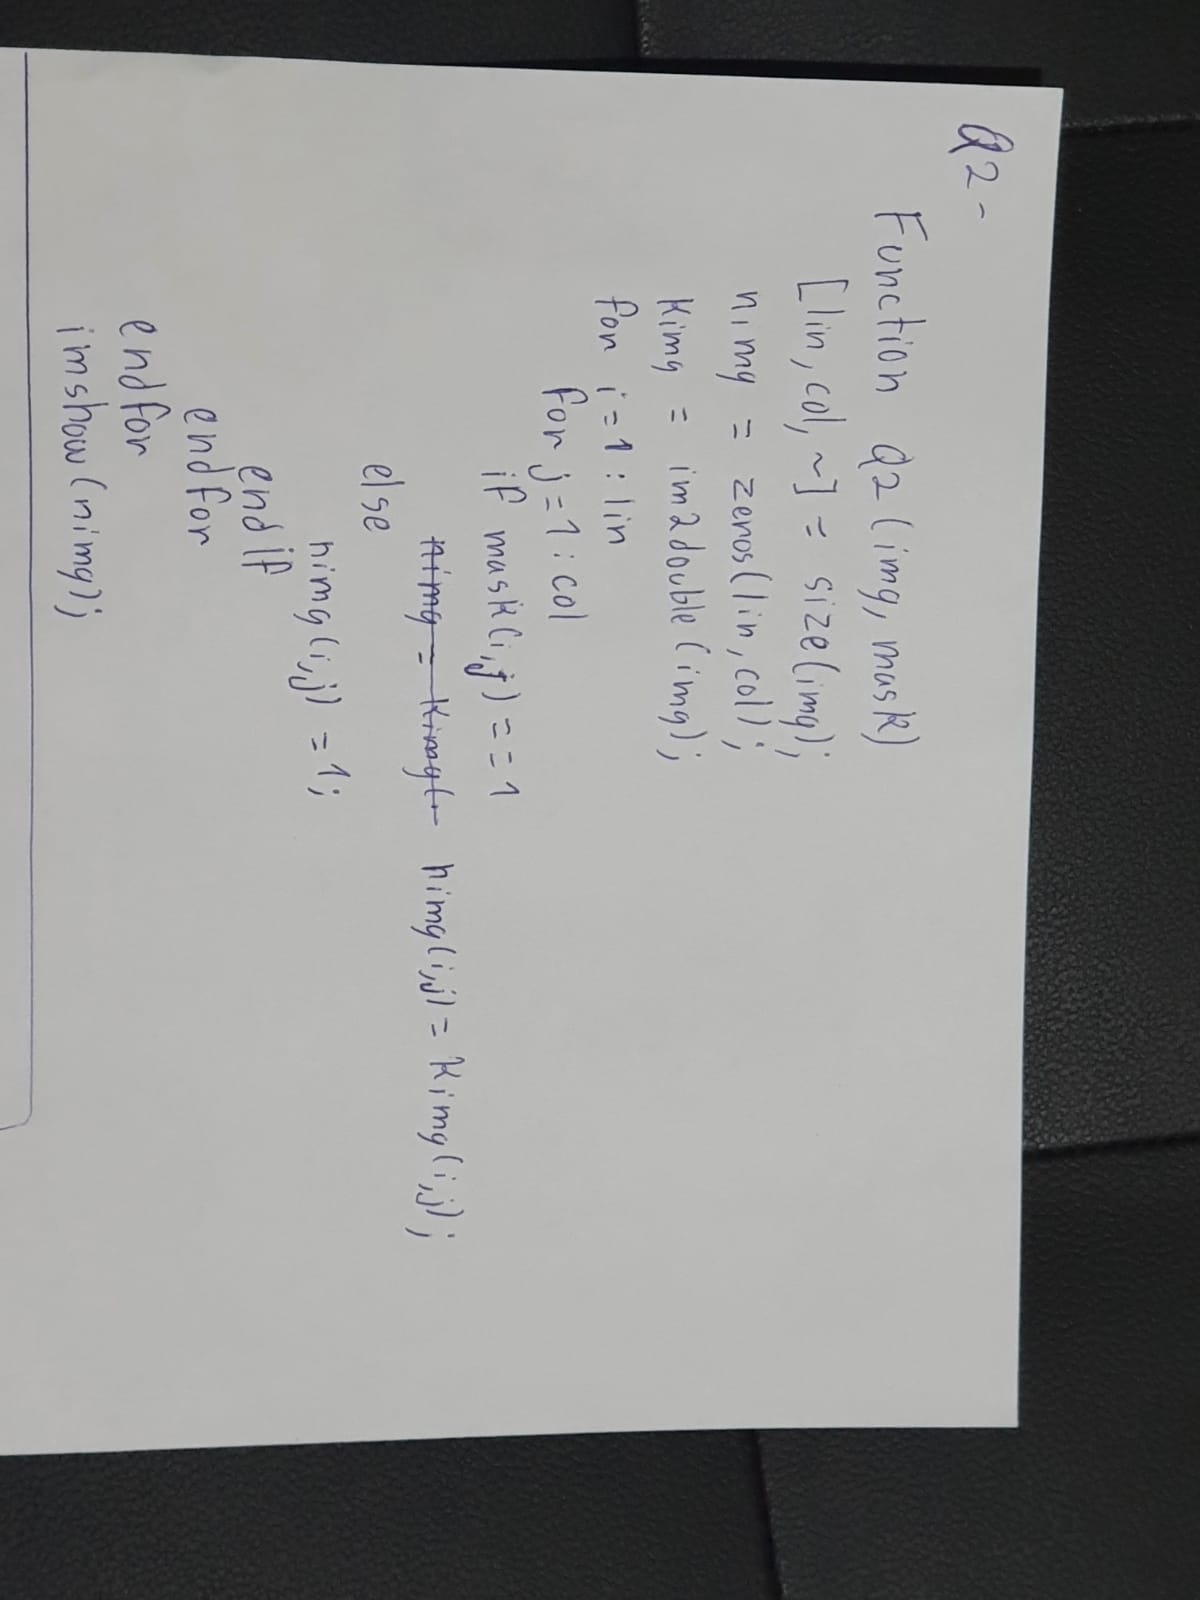 Q2-
Function Q2(img, mask)
[lin, col, ~] = size(img);
nimg = zeros(lin, col);
Kimg = im2double(img);
for i=1:lin
for j=1:col
if mask(i,j)==1
nimg = Kimg( nimg(i,j) = Kimg(i,j);
else
nimg(i,j) = 1;
endif
endfor
endfor
imshow(nimg);